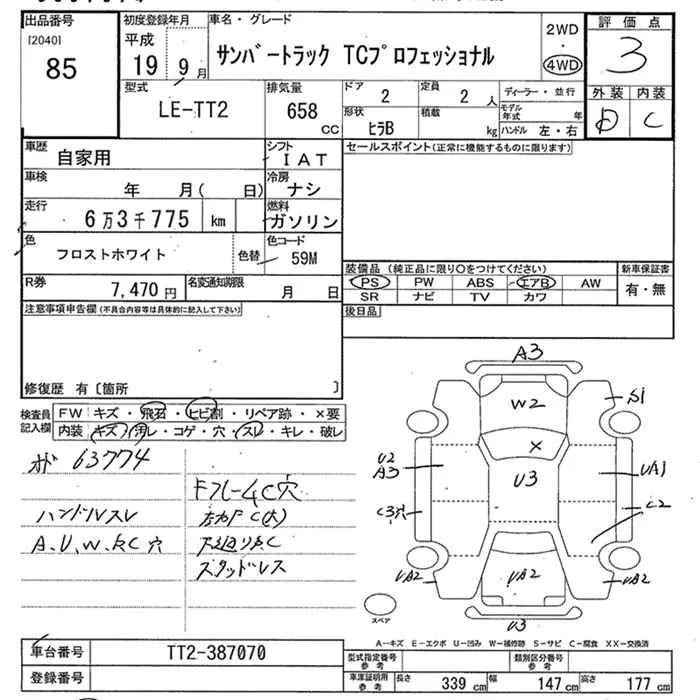 出品番号
[2040]
85
初度登録年月
平成
19 9月
車名・グレード
サンバートラック TCプロフェッショナル
2WD
・
4WD
評価点
3
外装 内装
D C
型式
LE-TT2
排気量
658
cc
ドア
2
定員
2 人
ディーラー・並行
形状
ヒラB
積載
kg
モデル年式 年
ハンドル 左・右
車歴
自家用
シフト
IAT
セールスポイント(正常に機能するものに限ります)
車検
年 月( 日)
冷房
ナシ
走行
6万3千775 km
燃料
ガソリン
色
フロストホワイト
色替
色コード
59M
装備品 (純正品に限り○をつけてください)
新車保証書
PS PW ABS エアB AW
有・無
SR ナビ TV カワ
R券
7,470 円
名変通知期限
月 日
後日品
注意事項申告欄(不具合内容等は具体的に記入して下さい)
修復歴 有〔箇所 〕
検査員
記入欄
FW キズ・飛石・ヒビ割・リペア跡・×要
内装 キズ・汚レ・コゲ・穴・スレ・キレ・破レ
63774
ハンドルスレ
A.U.W.
C 穴
C穴
C(大)
下廻り
C
スタッドレス
A3
W2
S1
X
U2
A3
U3
UA1
C3穴
C2
UA2
UA2
UA2
U3
スペア
A-キズ E-エクボ U-凹み W-補修跡 S-サビ C-腐食 XX-交換済
車台番号
TT2-387070
型式指定番号
参考
類別区分番号
参考
登録番号
車庫証明用
参考
長さ
339 cm
幅
147 cm
高さ
177 cm